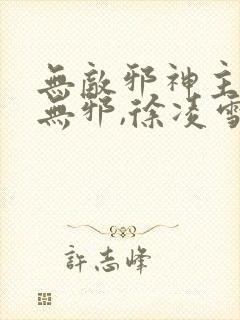 無敵邪神主
無邪,徐凌雪
許志峰